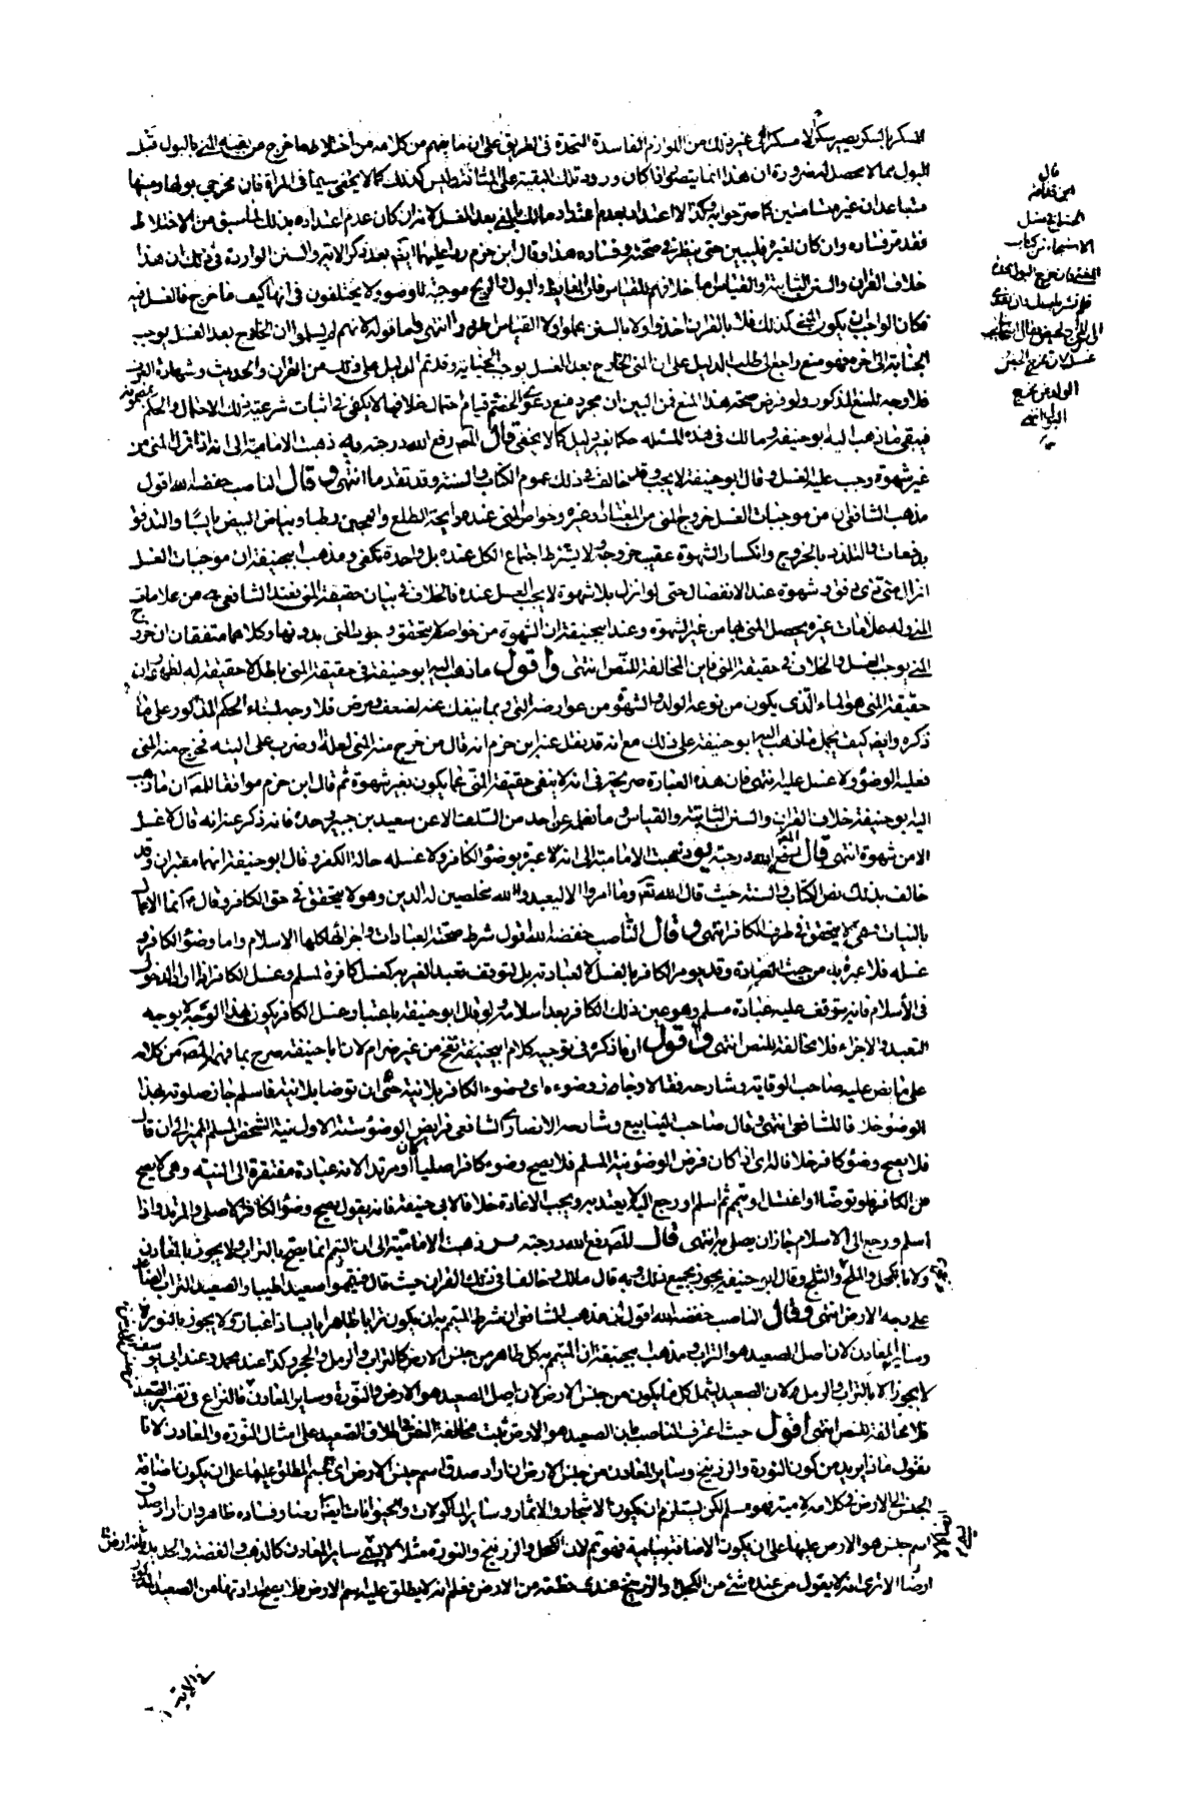 المسكر بالسكر يصير سكرا لا مسكرا الى غير ذلك من اللوازم الفاسدة المتحدة في الطريق على ان ما يفهم من كلامه من اختلاط ما خرج من بقية المني بالبول قبل
البول مما لا محصل له ضرورة ان هذا انما يتصور اذا كان ورود تلك البقية على المثانة وليس كذلك كما لا يخفى سيما في المراة فان مخرجي بولها ومنيها
متباعدان غير متسامتين كما صرحوا به وكذا لا اعتداد بعدم اعتداد مالك بما بعد الغسل لانه ان كان عدم اعتداده بذلك لما سبق من الاختلاط
فقد مر فساده وان كان لغيره فليبين حتى ينظر في صحته وفساده هذا وقال ابن حزم ردا عليهما ايضا بعد ذكر الاية والسنن الواردة في ذلك ان هذا
خلاف القران والسنن الثابتة والقياس اما خلافهم للقياس فان الغايط والبول والريح موجبة للوضوء لا يختلفون في انها كيف ما خرج فالغسل فيه
فكان الواجب ان يكون المني كذلك فلا بالقران اخذوا ولا بالسنن عملوا ولا القياس طردوا انتهى واما قوله لانهم لم يسلموا ان الخارج بعد الغسل يوجب
الجنابة الى اخره فهو منع راجع الى طلب الدليل على ان المني الخارج بعد الغسل يوجب الجنابة وقد تم الدليل على ذلك من القران والحديث وشهادة العرف
فلا وجه للمنع المذكور ولو فرض صحة هذا المنع فمن البين ان مجرد منع دعوى الخصم قيام احتمال خلافها لا يكفي في اثبات شرعية ذلك الاحتمال والحكم
فيبقى ما ذهب اليه ابو حنيفة ومالك في هذه المسئلة حكما بغير دليل كما لا يخفى قال المص رفع الله درجته ذهبت الامامية الى انه اذا انزل المني من
غير شهوة وجب عليه الغسل وقال ابو حنيفة لا يجب وقد خالف في ذلك عموم الكتاب والسنة وقد تقدما انتهى وقال الناصب خفضه الله اقول
مذهب الشافعي ان من موجبات الغسل خروج المني من المعتاد وغيره وخواص المني عنده رايحة الطلع والعجين رطبا وبياض البيض يابسا والتدفق
بدفعات والتلذذ بالخروج وانكسار الشهوة عقيب خروجه ولا يشترط اجتماع الكل عنده بل واحدة تكفي ومذهب ابيحنيفة ان موجبات الغسل
انزال مني ذي دفق وشهوة عند الانفصال حتى لو انزل بلا شهوة لا يجب الغسل عنده فالخلاف في بيان حقيقة المني فعند الشافعي هي من علامات
المني وله علامات غيره يحصل المني بها من غير الشهوة وعند ابيحنيفة ان الشهوة من خواصه لا يتحقق وجود المني بدونها وكلاهما متفقان ان خروج
المني يوجب الغسل والخلاف في حقيقة المني فاين المخالفة للنص انتهى واقول ما ذهب اليه ابو حنيفة في حقيقة المني باطل لا حقيقة له لظهور ان
حقيقة المني هو الماء الذي يكون من نوعه الولد والشهوة من عوارضه التي ربما ينفك عنه لضعف ومرض فلا وجه لبناء الحكم المذكور على ما
ذكره وايضا كيف يحمل ما ذهب اليه ابو حنيفة على ذلك مع انه قد نقل عنه ابن حزم انه قال من خرج منه المني لعلة او ضرب على البيته فخرج منه المني
فعليه الوضوء ولا غسل عليه انتهى فان هذه العبارة صريحة في انه لا ينفي حقيقة المني عما يكون بغير شهوة ثم قال ابن حزم موافقا للمص ان ما ذهب
اليه ابو حنيفة خلاف القران والسنن الثابتة والقياس وما نعلمه عن احد من السلف الا عن سعيد بن جبير وحده فانه ذكر عنه انه قال لا غسل
الا من شهوة انتهى قال المص رفع الله درجته ذهبت الامامية الى انه لا عبرة بوضوء الكافر ولا غسله حالة الكفر وقال ابو حنيفة انهما معتبران وقد
خالف بذلك نص الكتاب والسنة حيث قال الله تعالى وما امروا الا ليعبدوا الله مخلصين له الدين وهو لا يتحقق في حق الكافر وقال انما الاعمال
بالنيات وهي لا يتحقق في طرف الكافر انتهى وقال الناصب خفضه الله اقول شرط صحة العبادات واجزائها كلها الاسلام واما وضوء الكافر و
غسله فلا عبرة به من حيث العبادة وقد يومر الكافر بالغسل لا لعبادته بل لتوقف تعبد الغير به كغسل كافرة لمسلم وغسل الكافر اذا اراد الدخول
في الاسلام فانه يتوقف عليه عبادة مسلم وهو عين ذلك الكافر بعد اسلامه ولو قال ابو حنيفة باعتبار غسل الكافر يكون لهذا الوجه لا بوجه
التعبد والاجزاء فلا مخالفة للنص انتهى واقول ان ما ذكره في توجيه كلام ابيحنيفة نفخ من غير ضرام لان ابا حنيفة صرح بما فهم المص من كلامه
على ما نص عليه صاحب الوقاية وشارحه فقالا وجاز وضوءه اى وضوء الكافر بلا نية حتى ان توضا بلا نية فاسلم جاز صلوته بهذا
الوضوء خلافا للشافعي انتهى وقال صاحب الينابيع وشارحه الانصاري الشافعي فرايض الوضوء ستة الاول نية الشخص المسلم المميز الى ان قال
فلا يصح وضوء كافر خلافا له اى اذا كان فرض الوضوء نية المسلم فلا يصح وضوء كافر اصليا كان او مرتدا لانه عبادة مفتقرة الى النية وهي لا يصح
من الكافر فلو توضا او اغتسل او تيمم ثم اسلم او رجع اليه لا يعتد به ويجب الاعادة خلافا لابي حنيفة فانه يقول يصح وضوء الكافر الاصلي والمرتد واذا
اسلم ورجع الى الاسلام جاز ان يصلي به انتهى قال المص رفع الله درجته ذهبت الامامية الى ان التيمم انما يصح بالتراب ولا يجوز بالمعادن
ولا بالكحل والملح والثلج وقال ابو حنيفة يجوز بجميع ذلك وبه قال مالك وخالفا في ذلك القران حيث قال فتيمموا صعيدا طيبا والصعيد التراب الصاعد
على وجه الارض انتهى وقال الناصب خفضه الله اقول ان مذهب الشافعي ان شرط المتيمم به ان يكون ترابا طاهرا يابسا ذا غبار ولا يجوز بالنورة
وساير المعادن لان اصل الصعيد هو التراب ومذهب ابيحنيفة ان المتيمم به كل طاهر من جنس الارض كالتراب والرمل والحجر وكذا عند محمد وعند ابي يوسف
لا يجوز الا بالتراب والرمل ولان الصعيد يشمل كل ما يكون من جنس الارض لان اصل الصعيد هو الارض والنورة وساير المعادن فالنزاع في تفسير الصعيد
فلا مخالفة للنص انتهى اقول حيث اعترف الناصب بان الصعيد هو الارض ثبت مخالفة النص في اطلاق الصعيد على امثال النورة والمعادن لانا
نقول ماذا يريد من كون النورة والزرنيخ وساير المعادن من جنس الارض ان اراد صدق اسم جنس الارض اى الجسم المطلق عليها على ان يكون اضافة
الجنس الى الارض في كلامه لامية فهو مسلم لكن يستلزم ان يكون الاشجار والاثمار وساير الماكولات والحيوانات ايضا ارضا وفساده ظاهر وان اراد صدق
اسم جنس هو الارض عليها على ان يكون الاضافة بيانية فهو تم لان الكحل والزرنيخ والنورة مثلا لا يسمى ساير المعادن كالذهب والفضة والحديد
ارضا الا ترى انه لا يقول من عنده شئ من الكحل والزرنيخ عندى حفظته من الارض فعلم انه لا يطلق عليه اسم الارض فلا يصح ارادتها من الصعيد
قال
ابن قدامة
الحنبلي في فصل
الاستنجاء من كتاب
في الاية